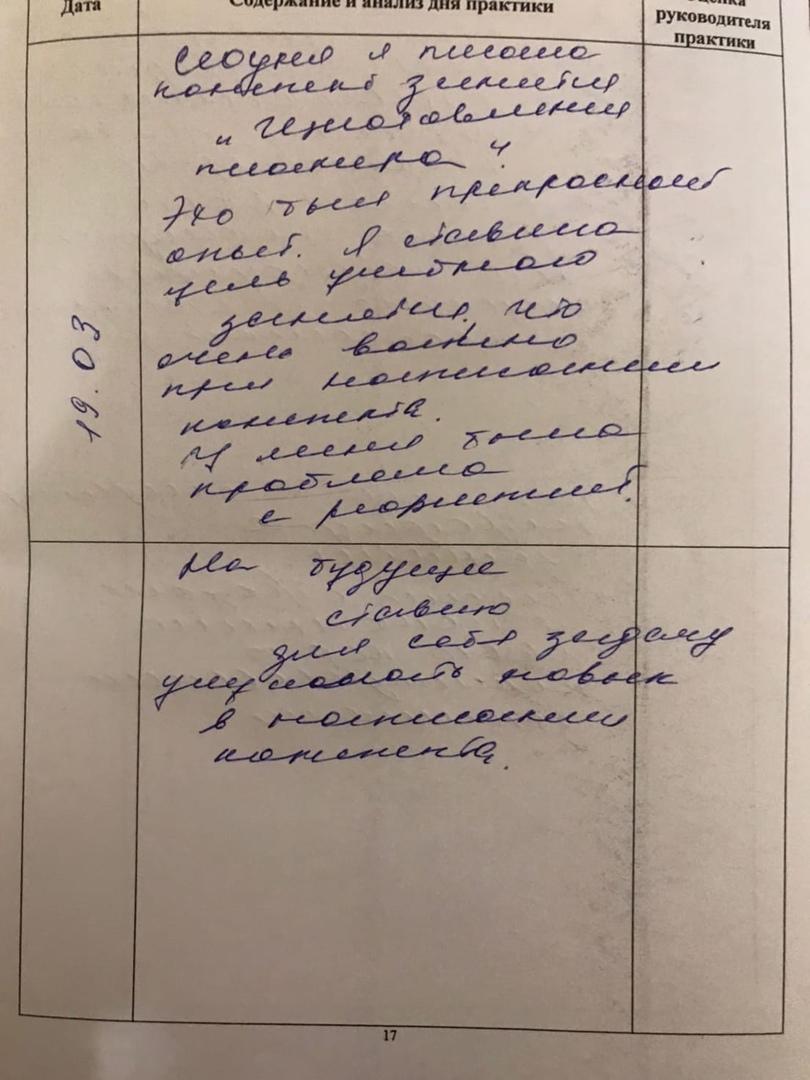 Дата
Содержание и анализ дня практики
Оценка
руководителя
практики
19.03
я писала
конспект занятия
„Изготовления
Это был прекрасный
опыт. Я ставила
цель учебного
занятия, что
очень важно
при написании
конспекта.
У меня была
проблема
с
На будущее
ставлю
для себя задачу
навык
в написании
конспекта.
17